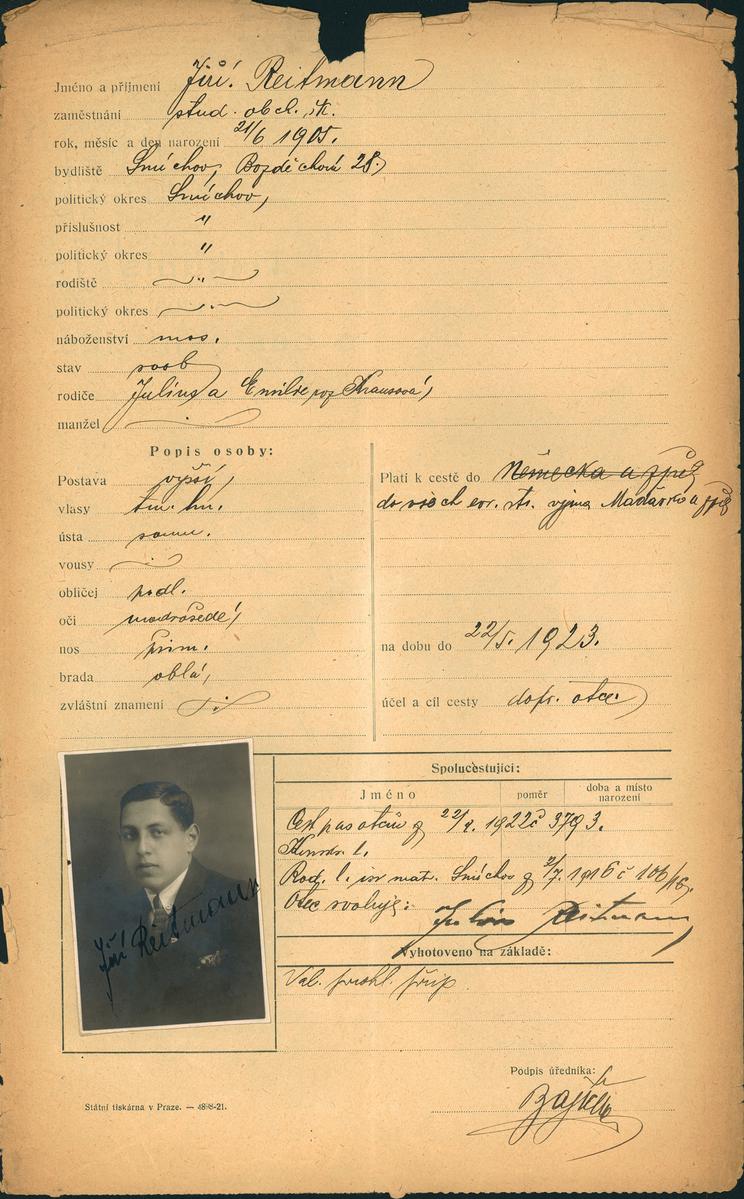 Jméno a příjmení Jiří Reitmann
zaměstnání stud. obch. šk.
rok, měsíc a den narození 21/6 1905.
bydliště Smíchov, Bozděchova 28.
politický okres Smíchov,
příslušnost "
politický okres "
rodiště "
politický okres
náboženství mos.
stav svob
rodiče Julius a Emilie roz Kraussová,
manžel
Popis osoby:
Postava vyšší,
vlasy tm. hn.
ústa soum.
vousy
obličej podl.
oči modrošedé,
nos přim.
brada oblá,
zvláštní znamení
Platí k cestě do Německa a zpět
do všech evr. st. vyjma Maďarska a zpět
na dobu do 22/5. 1923.
účel a cíl cesty dopr. otce
Spolucestující:
Jméno poměr doba a místo
narození
Cest pas otcův z 1922 č 3793.
Rod. l. isr mat. Smíchov z 2/7. 1916 č 106/16.
Otec svoluje: Julius Reitmann
Vyhotoveno na základě:
Jiří Reitmann
Podpis úředníka:
Státní tiskárna v Praze. —